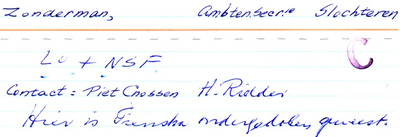 Zonderman, Ambtenaar Slochteren
C
LO + NSF
Contact: Piet Cnossen H. Ridder
Hier is Fenna ondergedoken geweest.